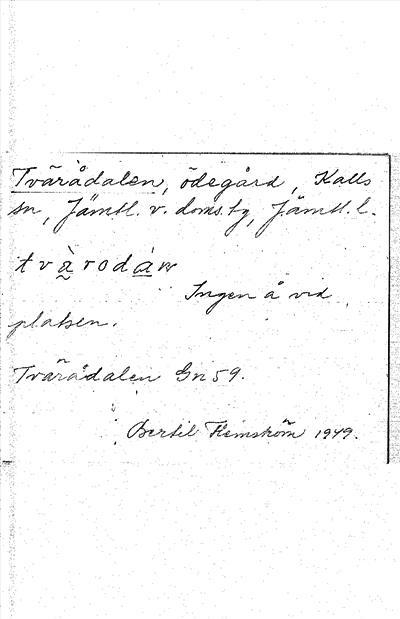 Tvärådalen, ödegård, Kalls
sn, Jämtl. v. doms.fg, Jämtl. l.
tvàrodàw
Ingen å vid
platsen.
Tvärådalen Gn 59.
Bertil Flemström 1949.